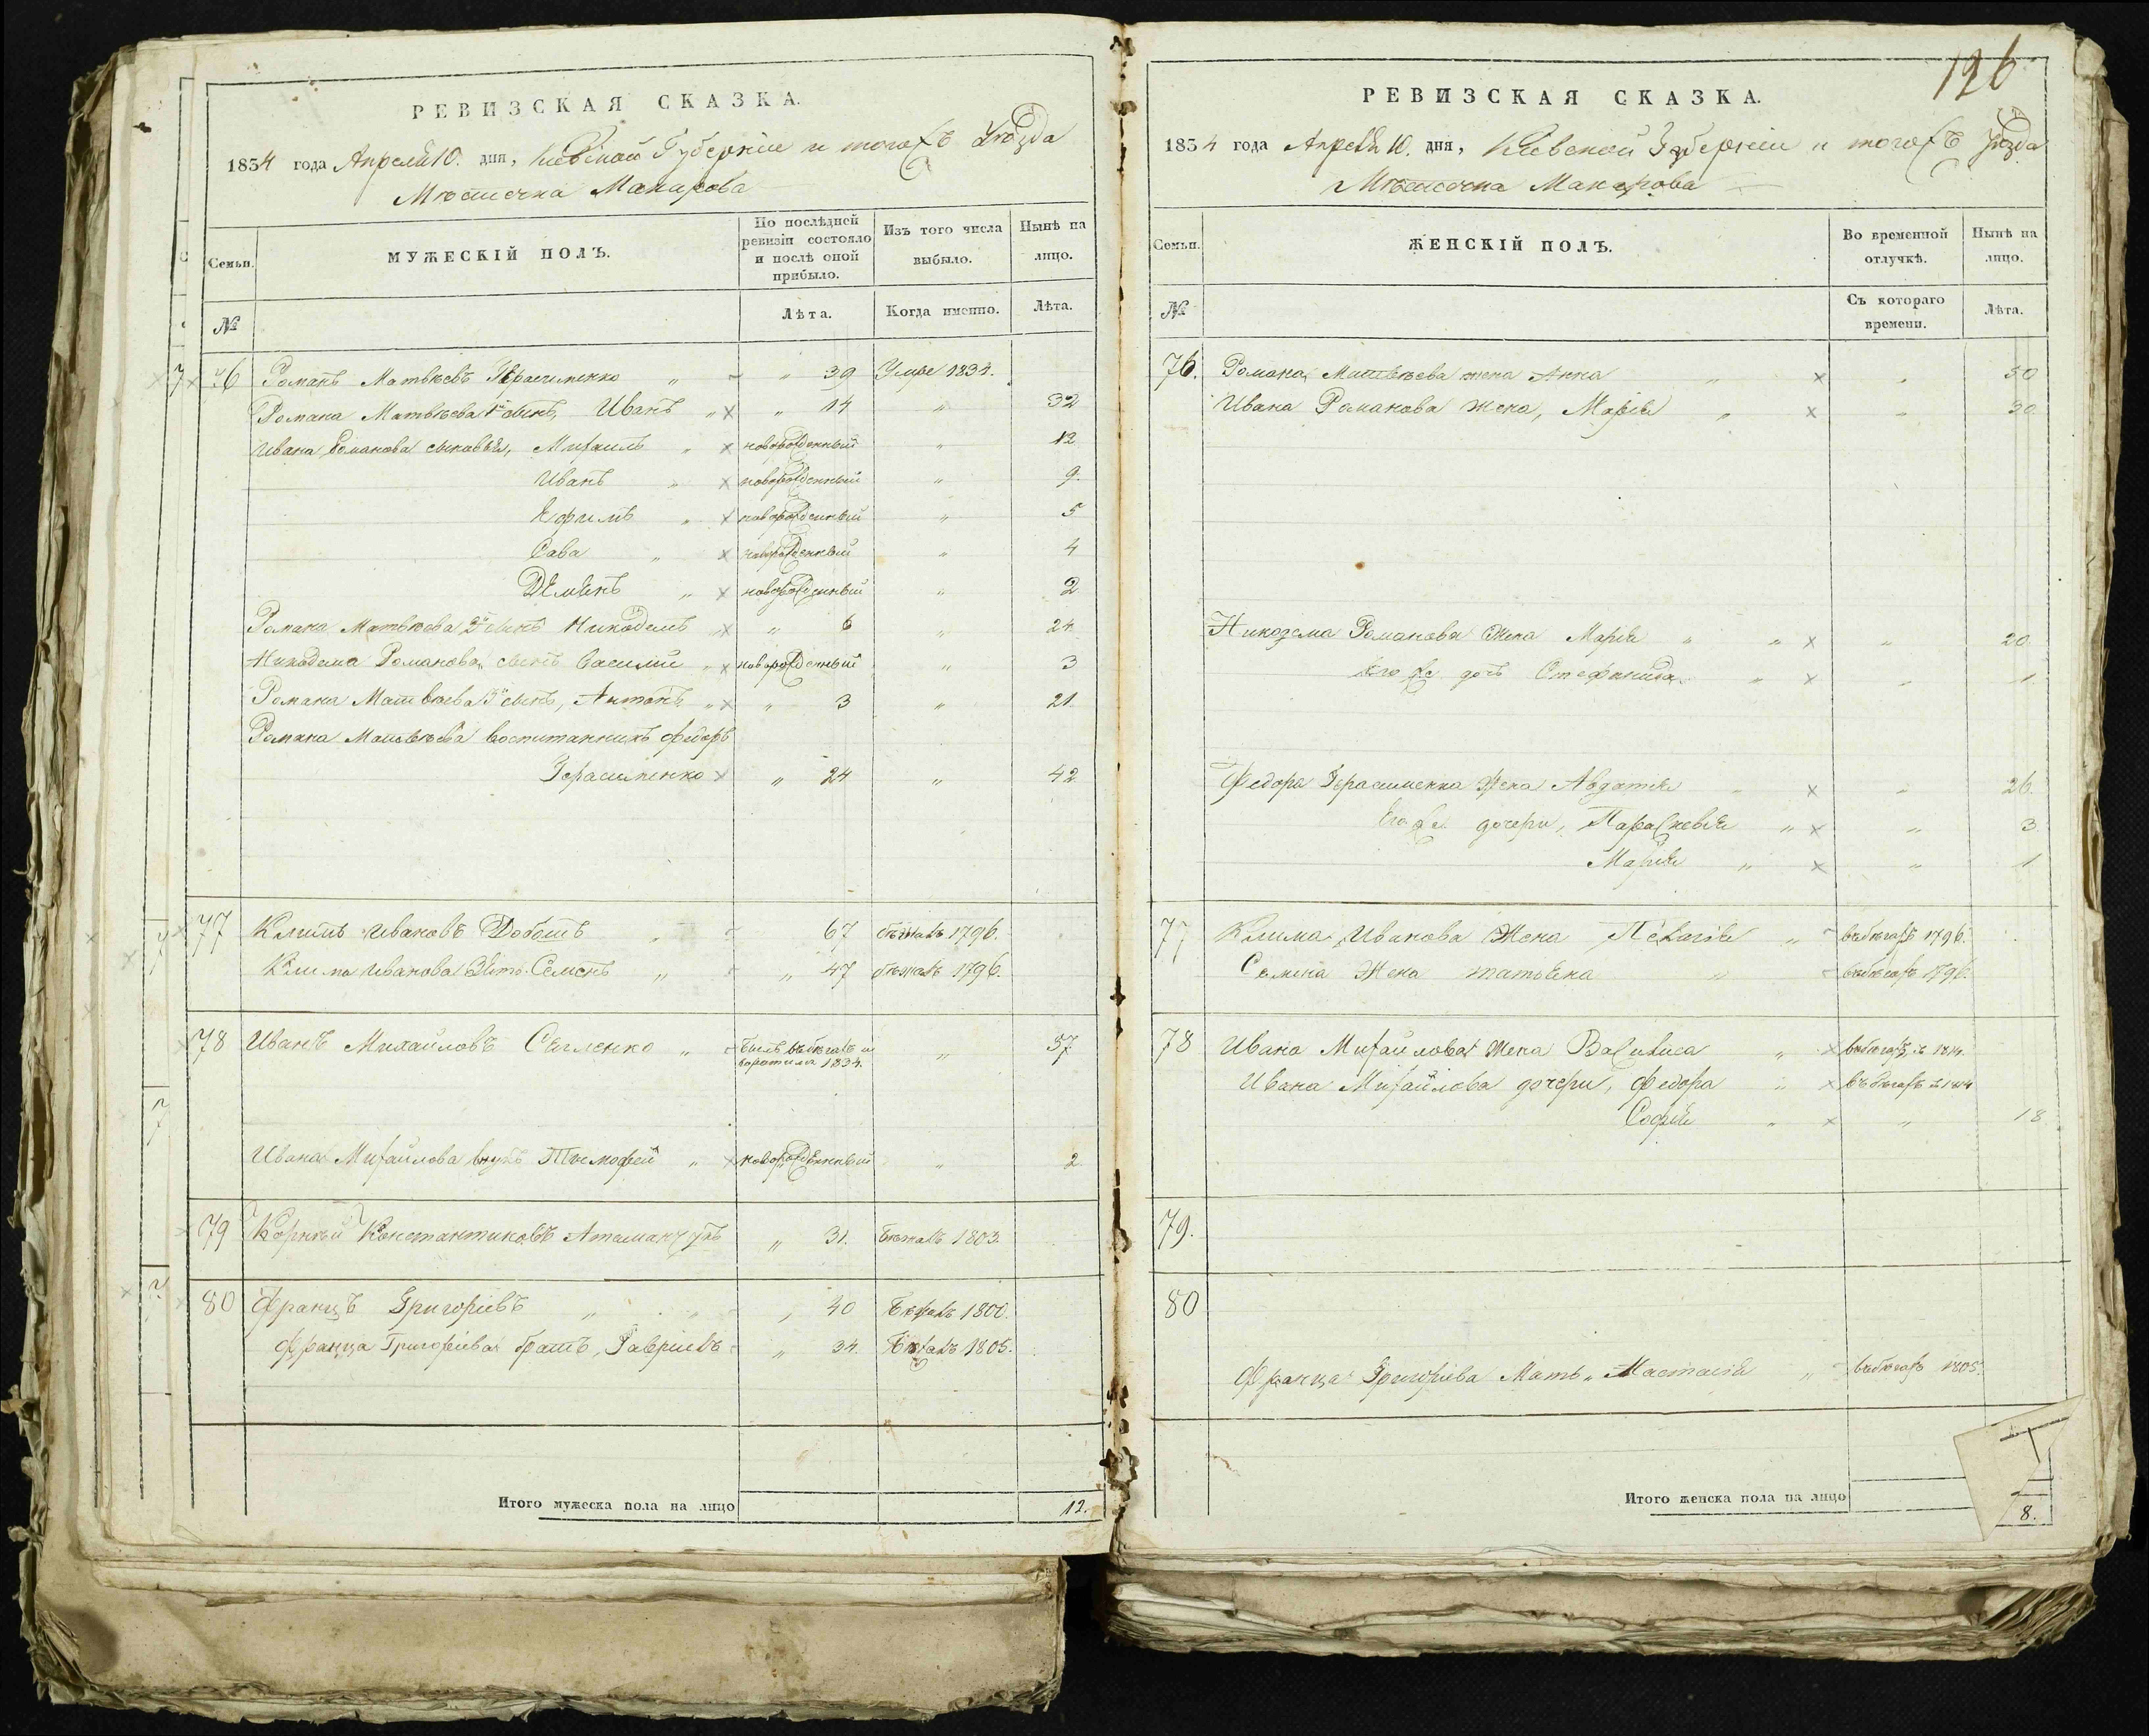 РЕВИЗСКАЯ СКАЗКА.
1834 года Апреля 10. дня, Кіевской Губерніи и тогожъ Уѣзда
Мѣстечка Макарова
Семьи.
МУЖЕСКІЙ ПОЛЪ.
По послѣдней ревизіи состояло и послѣ оной прибыло.
Изъ того числа выбыло.
Нынѣ на лицо.
№
Лѣта.
Когда именно.
Лѣта.
76 Романъ Матвѣевъ Герасименко „ 39 Умре 1834.
Романа Матвѣева 1й сынъ, Иванъ „ × „ 14 „ 32
Ивана Романова сыновья, Михаилъ „ × новорожденный „ 12
Иванъ „ × новорожденный „ 9.
Ефимъ „ × новорожденный „ 5
Сава „ × новорожденный „ 4
Демьянъ „ × новорожденный „ 2
Романа Матвѣева 2й сынъ Никодемъ „ × „ 6 „ 24
Никодема Романова сынъ Василій „ × новорожденный „ 3
Романа Матвѣева 3й сынъ, Антонъ „ × „ 3 „ 21
Романа Матвѣева воспитанникъ Федоръ
Герасименко × „ 24 „ 42
77 Климъ Ивановъ Добошъ „ 67 бѣжалъ 1796.
Клима Иванова Зять Семенъ „ „ 47 бѣжалъ 1796.
78 Иванъ Михайловъ „ былъ въ бѣгахъ и
воротился 1834. „ 57
Ивана Михайлова внукъ Тимофей „ × новорожденный „ 2
79 Корнѣй Константиновъ Атаманчукъ „ 31. Бѣжалъ 1803.
80 Францъ Григорьевъ „ „ „ 40 Бѣжалъ 1800.
Франца Григорьева братъ, Гаврилъ „ 34. Бѣжалъ 1805.
Итого мужеска пола на лицо 12.
126
РЕВИЗСКАЯ СКАЗКА.
1834 года Апреля 10. дня, Кіевской Губерніи и тогожъ Уѣзда
Мѣстечка Макарова
Семьи.
ЖЕНСКІЙ ПОЛЪ.
Во временной отлучкѣ.
Нынѣ на лицо.
№
Съ котораго времени.
Лѣта.
76. Романа Матвѣева жена Анна „ × „ 50
Ивана Романова жена, Марія „ × „ 30
Никодема Романова Жена Марія „ „ × „ 20
Его же дочь Стефанида „ × „ 1
Федора Герасименка Жена Авдотія „ × „ 26.
Его же дочери, Параскевія „ × „ 3
Марія „ × „ 1
77 Клима Иванова Жена Пелагія „ въ бѣгахъ 1796.
Семена Жена Татьяна „ въ бѣгахъ 1796.
78 Ивана Михайлова Жена Василиса „ × въ бѣгахъ съ 1814.
Ивана Михайлова дочери, Федора „ × въ бѣгахъ съ 1814
Софія „ × „ 18
79.
80
Франца Григорьева Мать „ Настасія „ въ бѣгахъ 1805.
Итого женска пола на лицо 8.